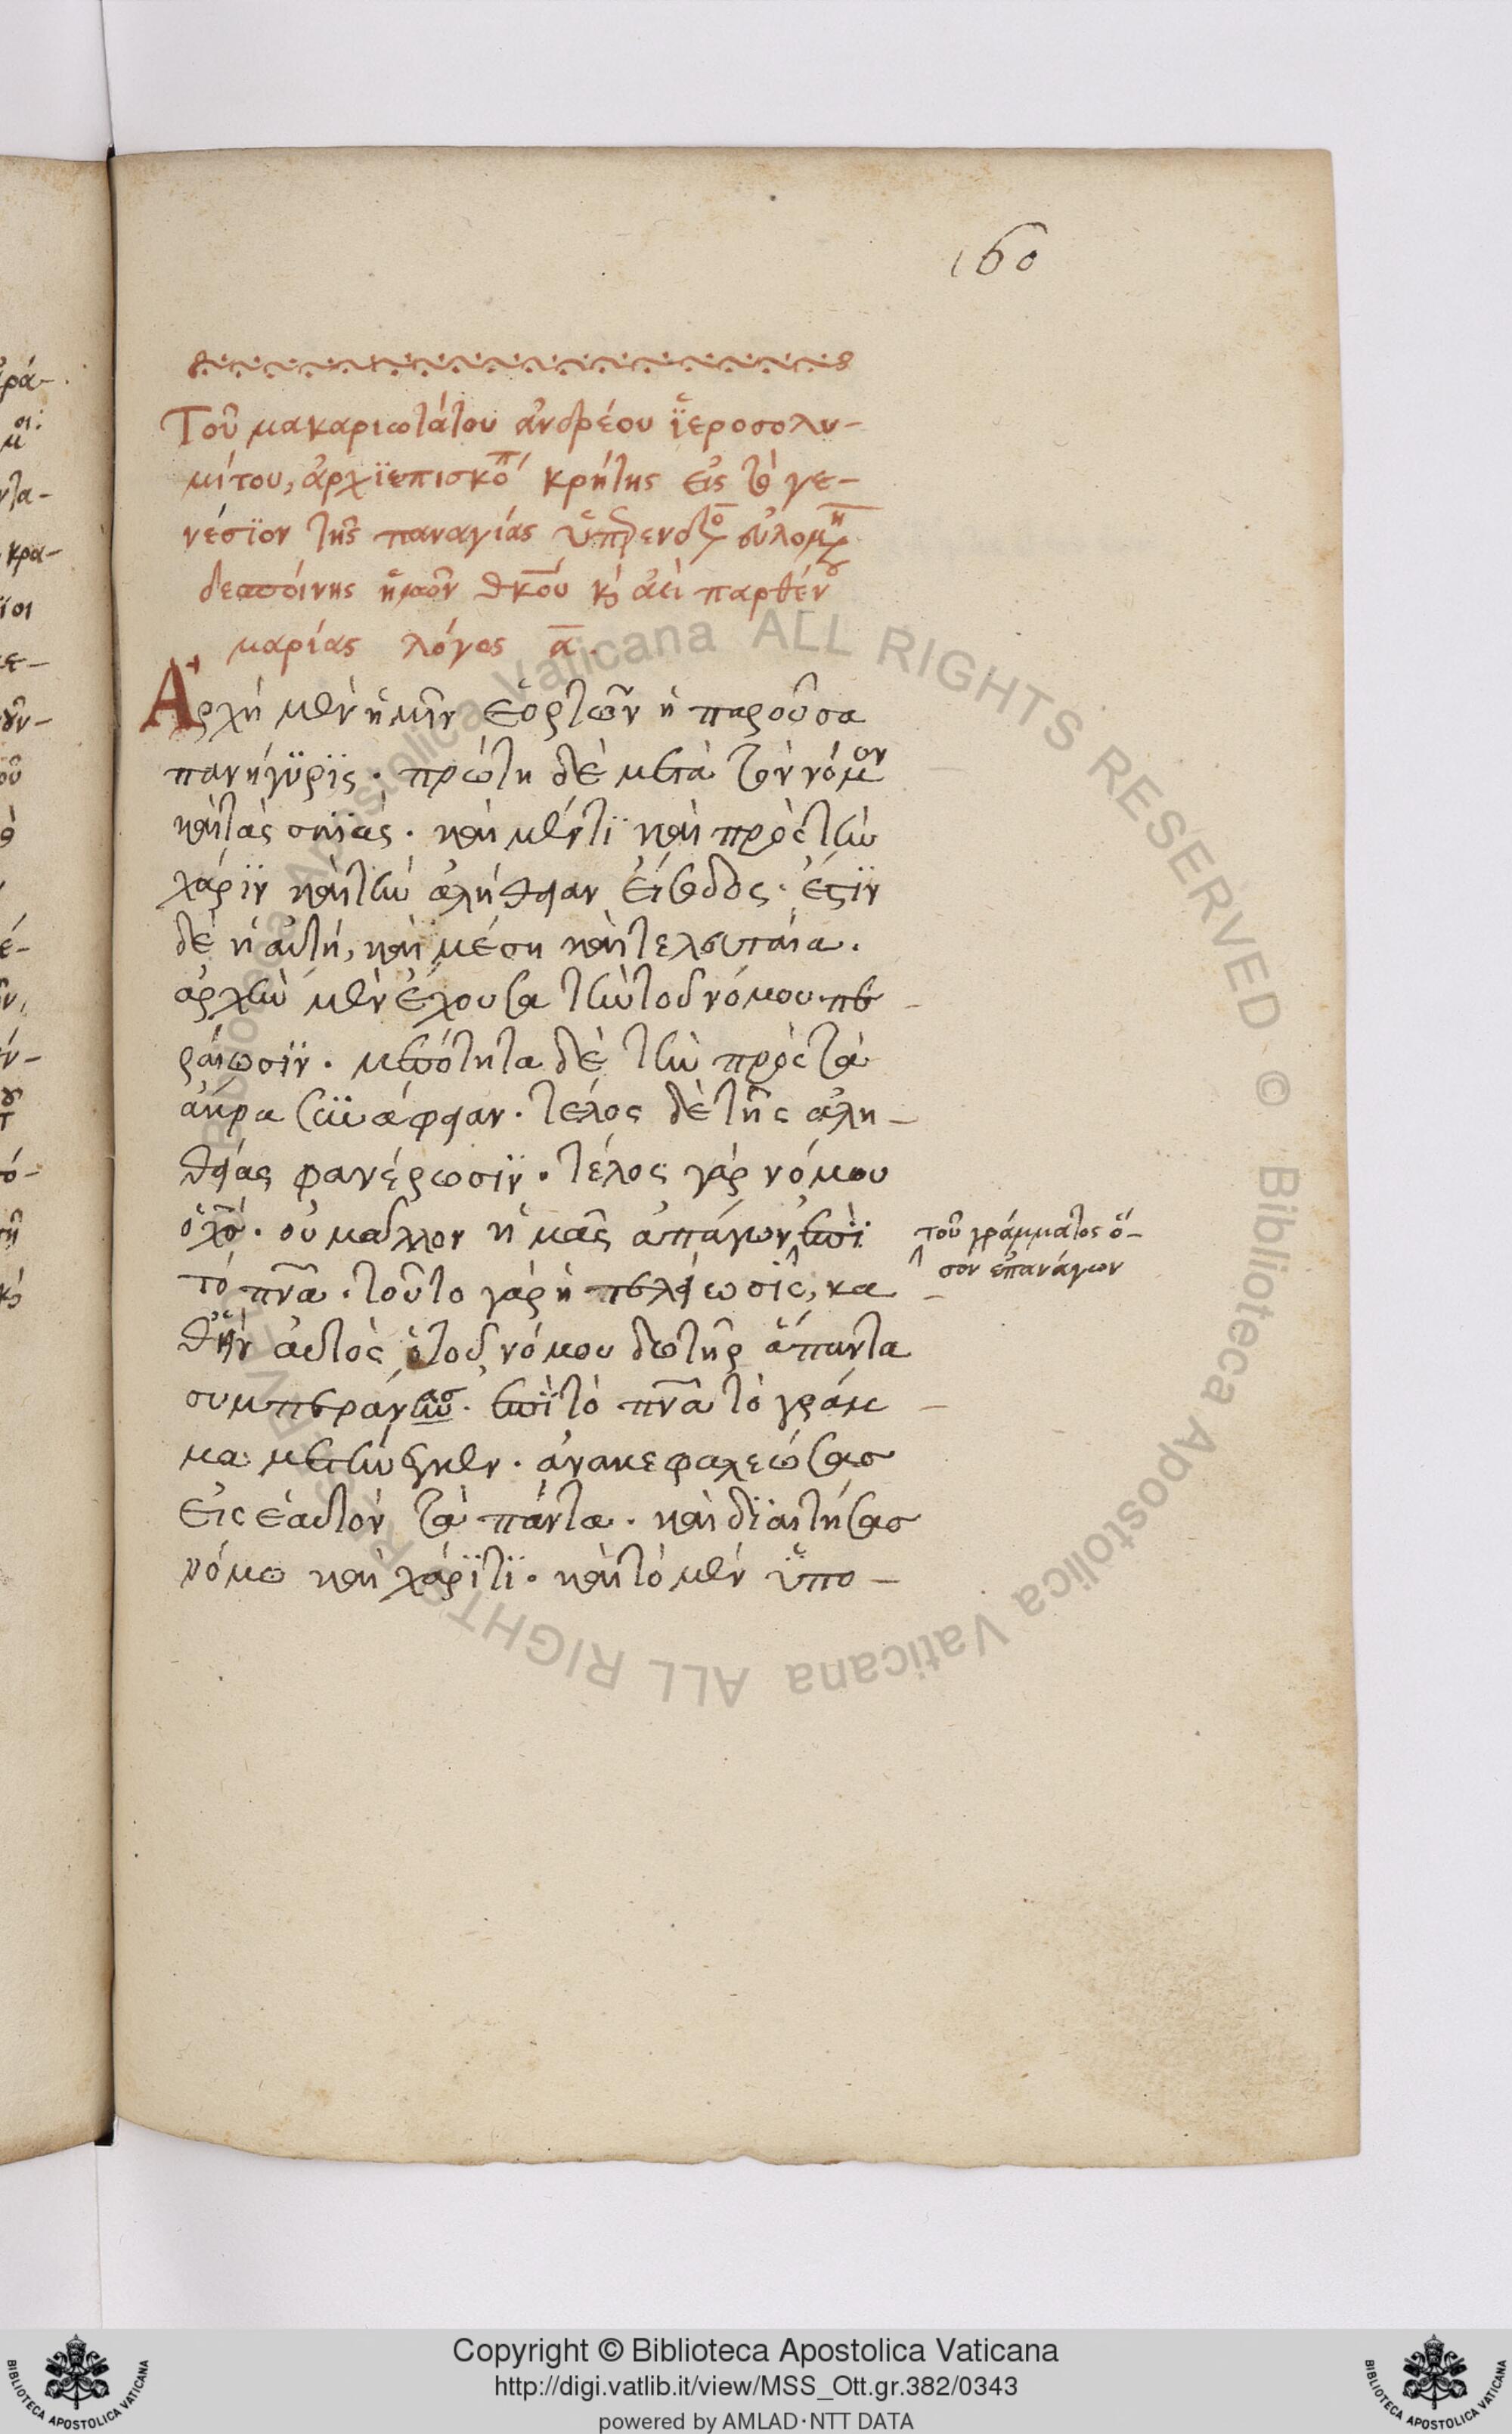 160
Τοῦ μακαριωτάτου ἀνδρέου ἱεροσολυ-
μίτου, ἀρχϊεπισκό^π κρήτης εἰς τὸ γε-
νέσϊον τῆς παναγίας ὑπερενδόξ εὐλογημ
δεσποίνης ἡμῶν θκου κ ἀεὶ παρθένου
μαρίας λόγος α.
Ἀρχὴ μὲν ἡμῖν ἑορτῶν ἡ παροῦσα
πανήγϋρϊς · πρώτη δὲ μετὰ τὸν νόμον
καὶ τὰς σκϊάς · καὶ μέντϊ καὶ πρὸς τὴν
χάρϊν καὶ τὴν ἀλήθειαν εἴσοδος · ἔστϊν
δὲ ἡ αὐτὴ, καὶ μέση καὶ τελευταία .
ἀρχὴν μὲν ἔχουσα τὴν τοῦ νόμου πε-
ραίωσϊν · μεσότητα δὲ τὴν πρὸς τὰ
ἄκρα συνάφειαν · τέλος δὲ τῆς ἀλη-
θείας φανέρωσϊν · τέλος γὰρ νόμου
ὁ χσ · οὐ μᾶλλον ἡμᾶς ἀπάγων ἐπὶ
τοῦ γράμματος ὅ-
σον ἐπανάγων
τὸ πνα · τοῦτο γὰρ ἡ τελείωσις, κα-
θ' ἣν αὐτὸς ὁ τοῦ νόμου δωτὴρ ἅπαντα
συμπεράνας · ἐπὶ τὸ πνα τὸ γράμ-
μα μετήνεγκεν · ἀνακεφαλεώσας
εἰς ἑαυτὸν τὰ πάντα · καὶ δϊαιτήσας
νόμω καὶ χάρϊτϊ · καὶ τὸ μὲν ὑπο-
Copyright © Biblioteca Apostolica Vaticana
http://digi.vatlib.it/view/MSS_Ott.gr.382/0343
powered by AMLAD·NTT DATA